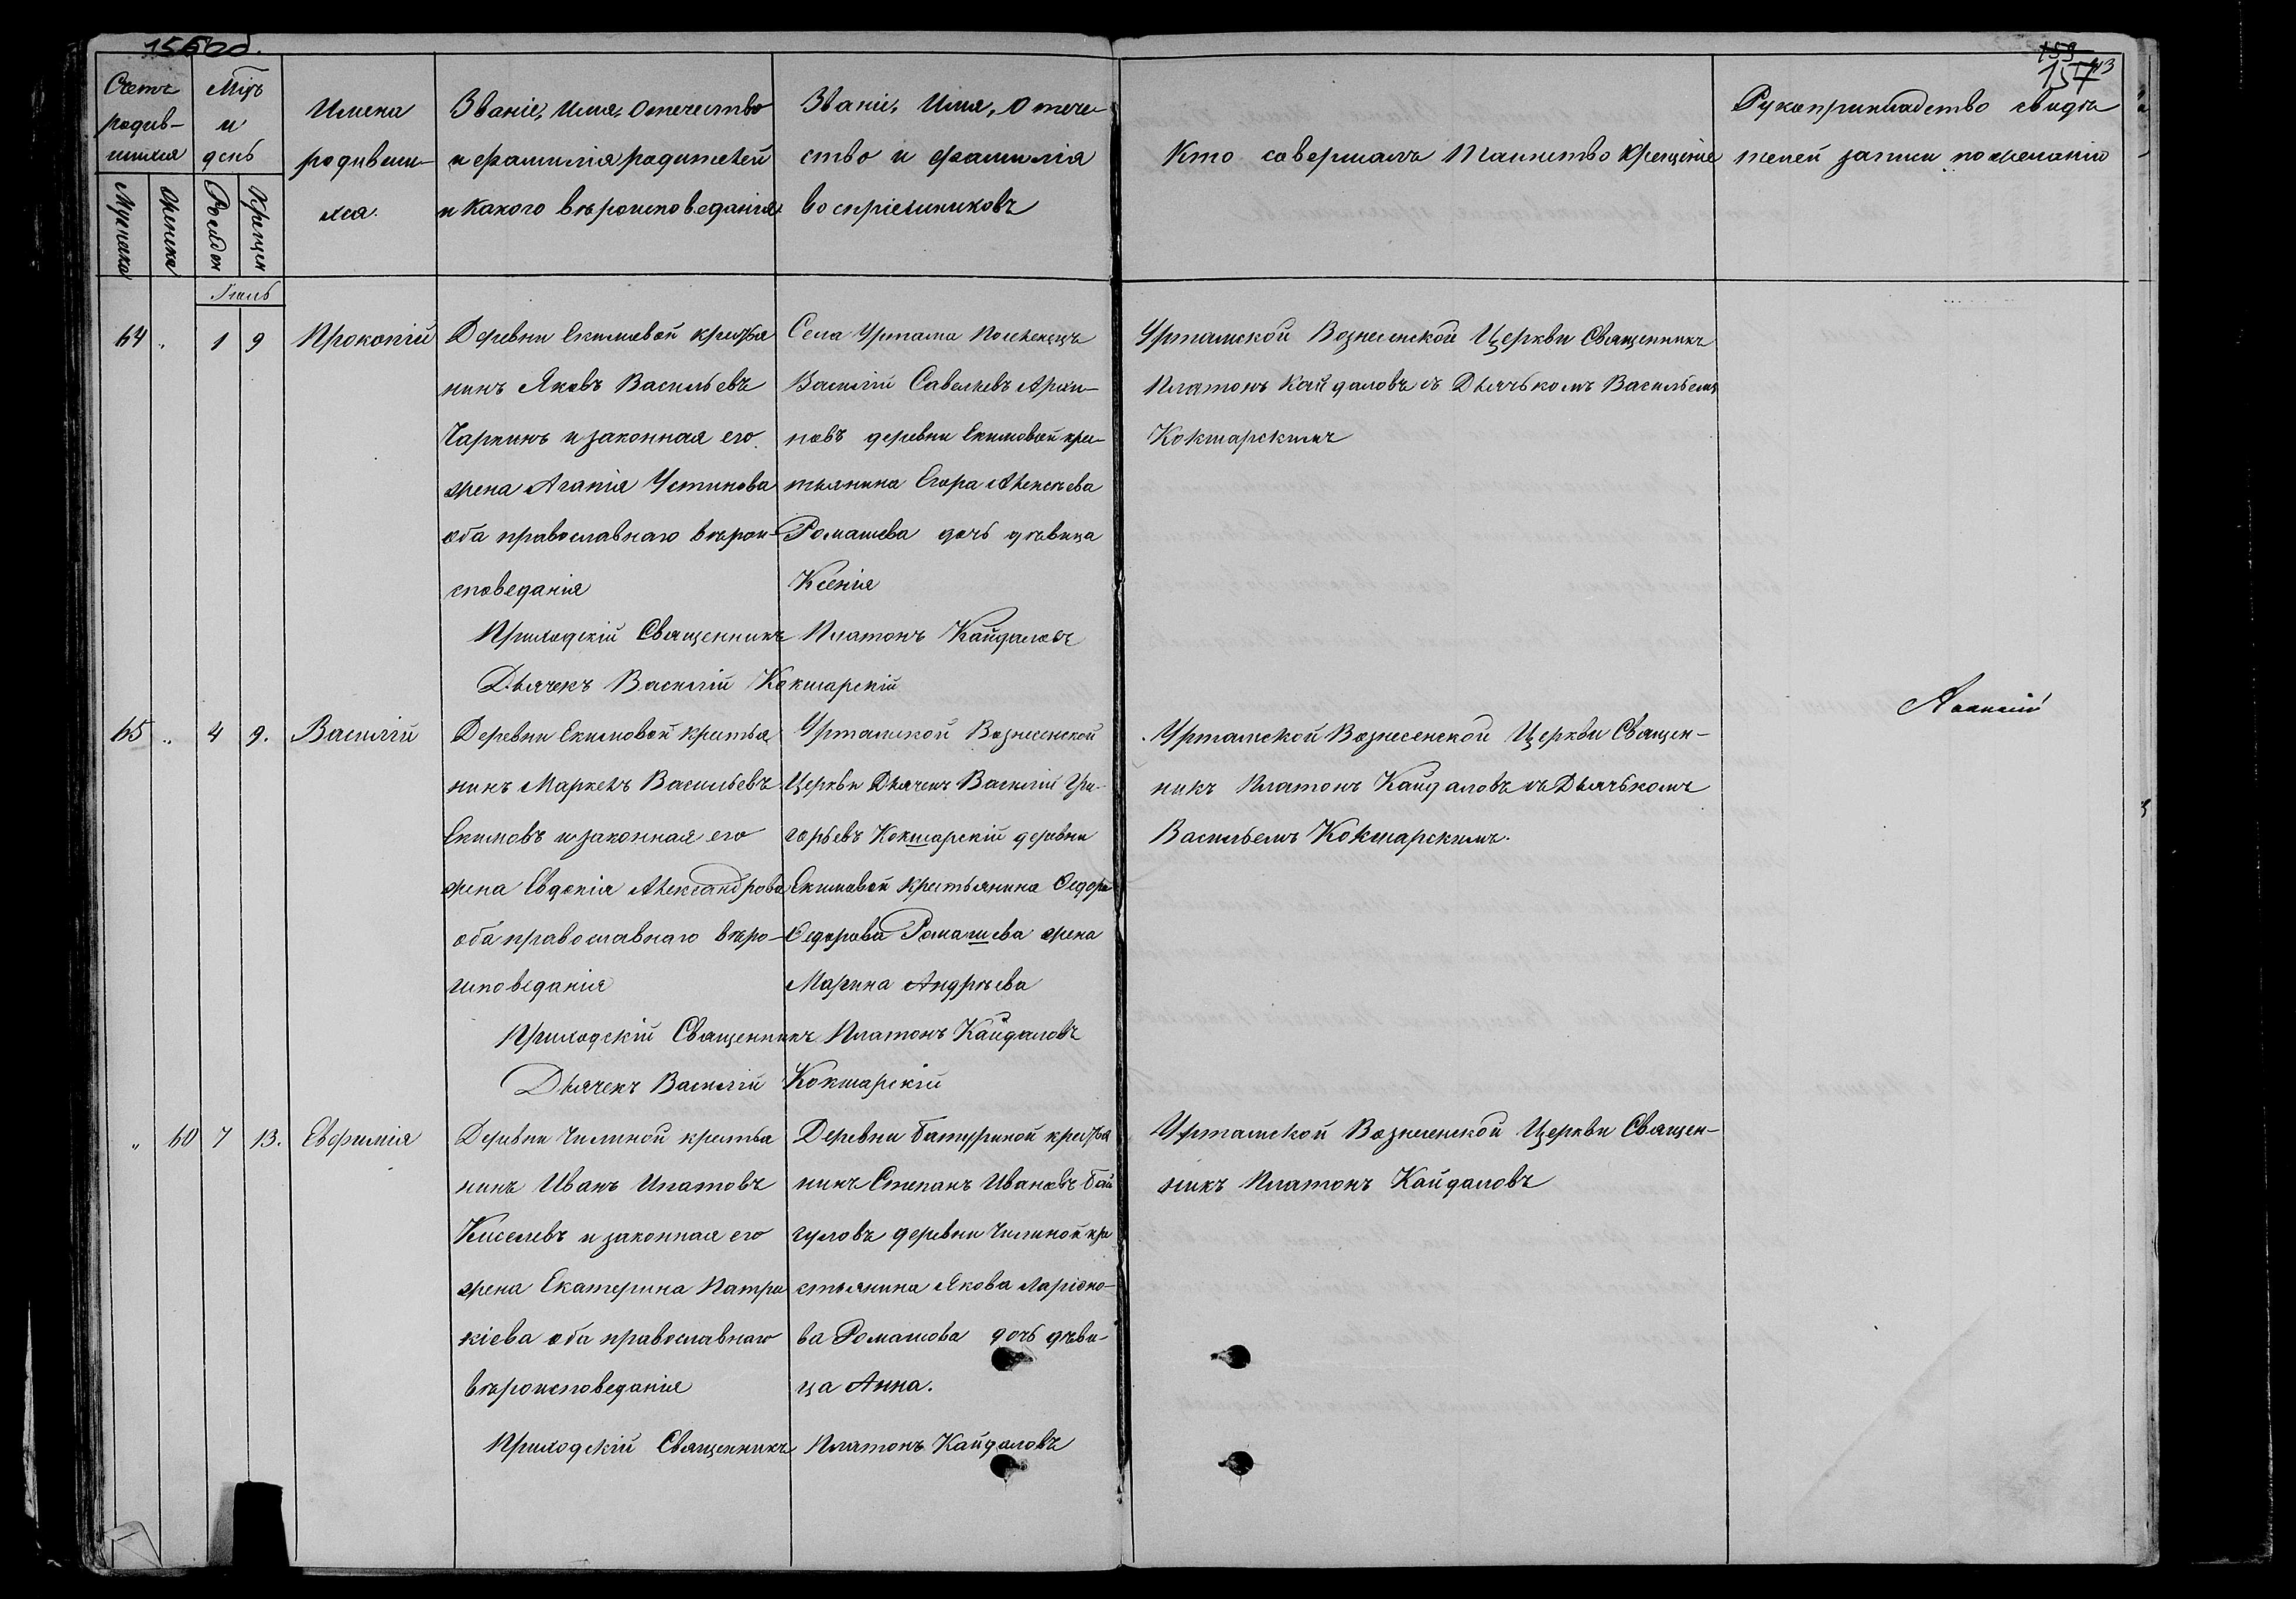 156 об.
159
157
Счетъ родив-шихся
Мужеска
Женска
Мѣсяцъ и день
Рожден
Крещен
Имена родивши-хся.
Званіе, Имя, Отечество и фамилія родителей и какого вѣроисповеданія.
Званіе, Имя, Отече-ство и фамилія воспріемниковъ
Кто совершалъ Таинство Крещенія
Рукоприкладство свидѣтелей записи по желанію
Іюль
64 " 1 9 Прокопій
Деревни Екимовой крестья
нинъ Яковъ Васильевъ
Чаркинъ и законная его
жена Агапія Устинова
оба православнаго вѣрои-
споведанія
Села Уртама Поселенецъ
Василій Савельевъ Архи-
повъ деревни Екимовой кре-
стьянина Егора Алексѣева
Ромашева дочь дѣвица
Ксенія
Уртамской Вознесенской Церкви Священникъ
Платонъ Кайдаловъ съ Дьячькомъ Васильемъ
Кокшарскимъ
Приходскій Священникъ Платонъ Кайдаловъ
Дьячекъ Василій Кокшарскій
65 " 4 9. Василій
Деревни Екимовой крестья
нинъ Маркелъ Васильевъ
Екимовъ и законная его
жена Евдокія Александрова
оба православнаго вѣро-
исповеданія
Уртамской Вознесенской
Церкви Дьячекъ Василій Гри-
горьевъ Кокшарскій деревни
Екимовой крестьянина Ѳедора
Ѳедорова Ромашева жена
Марина Андрѣева
Уртамской Вознесенской Церкви Священ-
никъ Платонъ Кайдаловъ съ Дьячькомъ
Васильемъ Кокшарскимъ.
Приходскій Священникъ Платонъ Кайдаловъ
Дьячекъ Василій Кокшарскій
" 60 7 13. Евфимія
Деревни Чилиной крестья
нинъ Иванъ Ипатовъ
Киселевъ и законная его
жена Екатерина Патри
кіева оба православнаго
вѣроисповеданія
Деревни Батуриной крестья
нинъ Степанъ Ивановъ Бай
гуловъ деревни Чилиной кре
стьянина Якова Ларіоно-
ва Ромашова дочь дѣви-
ца Анна.
Уртамской Вознесенской Церкви Священ-
никъ Платонъ Кайдаловъ
Приходскій Священникъ Платонъ Кайдаловъ